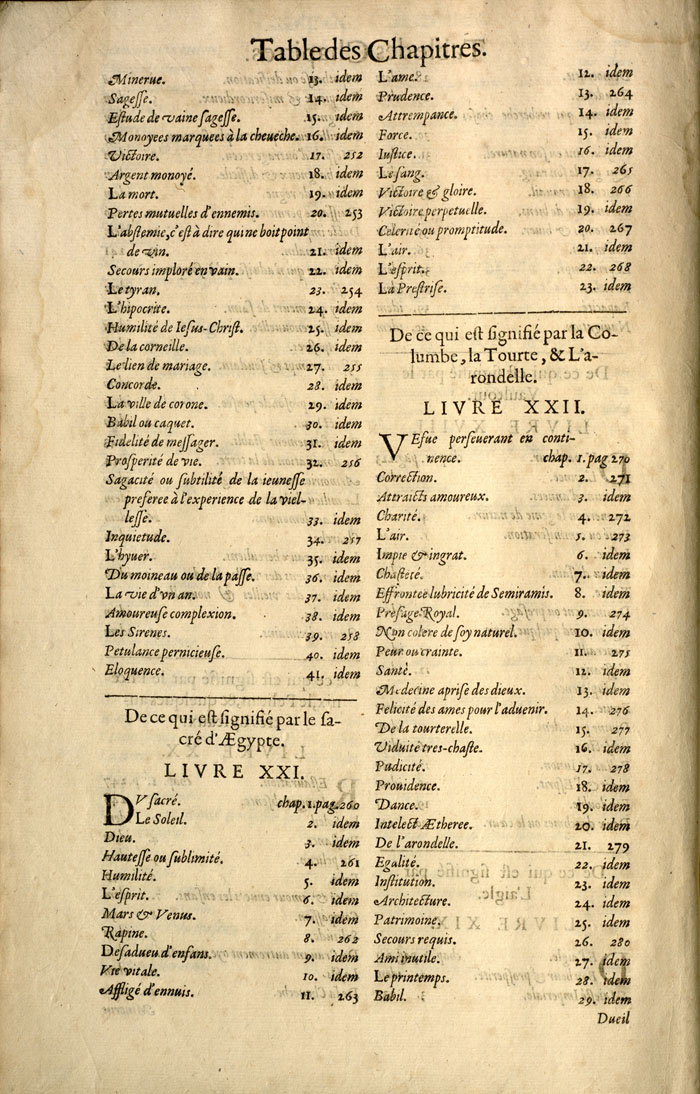 Table des Chapitres.
Minerue. 13. idem
Sagesse. 14. idem
Estude de vaine sagesse. 15. idem
Monoyees marquees à la cheueche. 16. idem
Victoire. 17. 252
Argent monoyé. 18. idem
La mort. 19. idem
Pertes mutuelles d'ennemis. 20. 253
L'abstemie, c'est à dire qui ne boit point
de vin. 21. idem
Secours imploré en vain. 22. idem
Le tyran. 23. 254
L'hipocrite. 24. idem
Humilité de Iesus-Christ. 25. idem
De la corneille. 26. idem
Le lien de mariage. 27. 255
Concorde. 28. idem
La ville de corone. 29. idem
Babil ou caquet. 30. idem
Fidelité de messager. 31. idem
Prosperité de vie. 32. 256
Sagacité ou subtilité de la ieunesse
preferee à l'experience de la viel-
lesse. 33. idem
Inquietude. 34. 257
L'hyuer. 35. idem
Du moineau ou de la passe. 36. idem
La vie d'vn an. 37. idem
Amoureuse complexion. 38. idem
Les Sirenes. 39. 258
Petulance pernicieuse. 40. idem
Eloquence. 41. idem
De ce qui est signifié par le sa-
cré d'Ægypte.
LIVRE XXI.
DV sacré. chap. 1. pag. 260
Le Soleil. 2. idem
Dieu. 3. idem
Hautesse ou sublimité. 4. 261
Humilité. 5. idem
L'esprit. 6. idem
Mars & Venus. 7. idem
Rapine. 8. 262
Desadueu d'enfans. 9. idem
Vie vitale. 10. idem
Affligé d'ennuis. 11. 263
L'ame. 12. idem
Prudence. 13. 264
Attrempance. 14. idem
Force. 15. idem
Iustice. 16. idem
Le sang. 17. 265
Victoire & gloire. 18. 266
Victoire perpetuelle. 19. idem
Celerité ou promptitude. 20. 267
L'air. 21. idem
L'esprit. 22. 268
La Prestrise. 23. idem
De ce qui est signifié par la Co-
lumbe, la Tourte, & L'a-
rondelle.
LIVRE XXII.
VEfue perseuerant en conti-
nence. chap. 1. pag 270
Correction. 2. 271
Attraicts amoureux. 3. idem
Charité. 4. 272
L'air. 5. 273
Impie & ingrat. 6. idem
Chasteté. 7. idem
Effrontee lubricité de Semiramis. 8. idem
Presage Royal. 9. 274
Non colere de soy naturel. 10. idem
Peur ou crainte. 11. 275
Santé. 12. idem
Medecine aprise des dieux. 13. idem
Felicité des ames pour l'aduenir. 14. 276
De la tourterelle. 15. 277
Viduité tres-chaste. 16. idem
Pudicité. 17. 278
Prouidence. 18. idem
Dance. 19. idem
Intelect Ætheree. 20. idem
De l'arondelle. 21. 279
Egalité. 22. idem
Institution. 23. idem
Architecture. 24. idem
Patrimoine. 25. idem
Secours requis. 26. 280
Ami inutile. 27. idem
Le printemps. 28. idem
Babil. 29. idem
Dueil